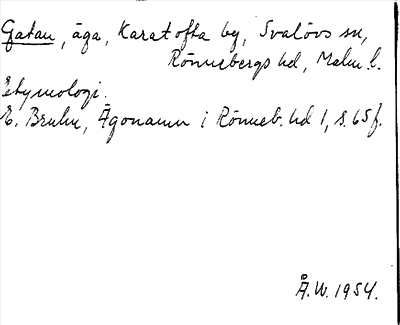 Gatan, äga, Karatofta by, Svalövs sn,
Rönnebergs hd, Malm. l.
Etymologi.
E. Bruhn, Ägonamn i Rönneb. hd 1, s. 65 f.
Å.W. 1954.